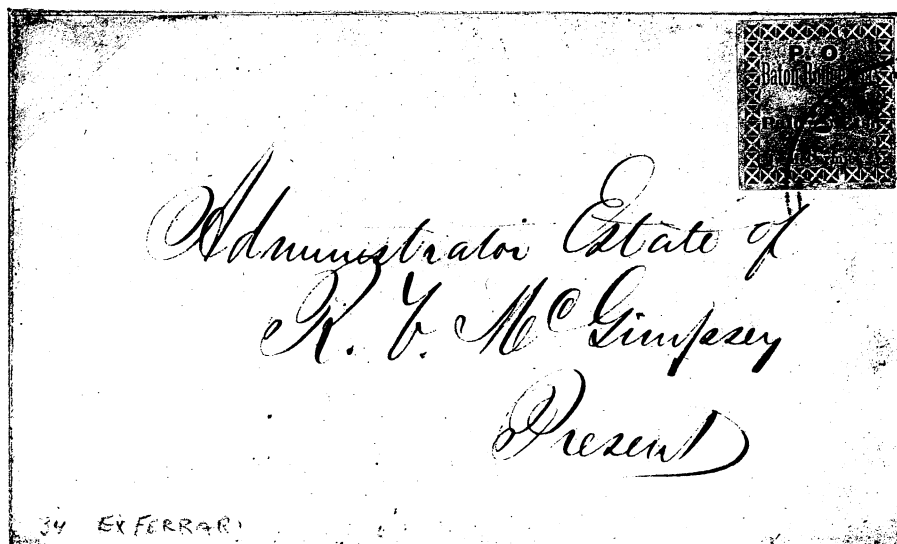 P. O.
Baton Rouge, La.
Administrator Estate of
R. T. McGimpsey
Present
34 EX FERRARI